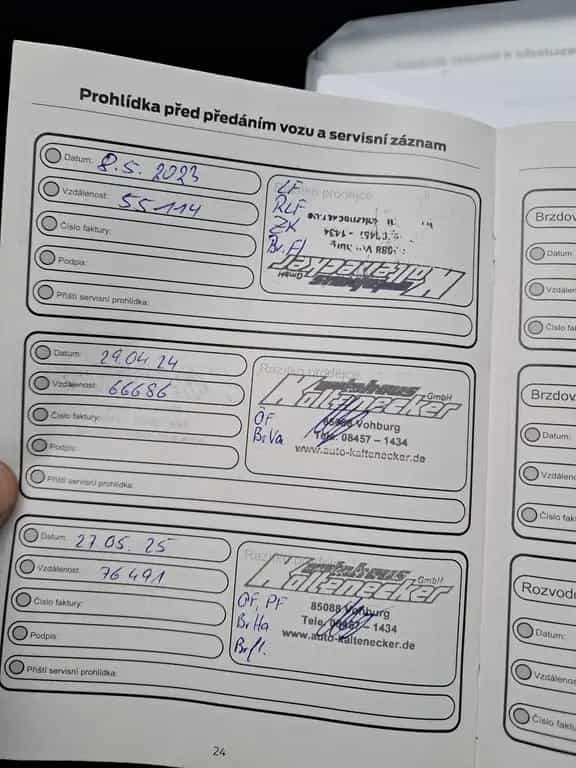 Prohlídka před předáním vozu a servisní záznam
Datum: 8.5. 2023
Vzdálenost: 55114
Číslo faktury:
Podpis:
Příští servisní prohlídka:
LF
RLF
ZK
Br.Fl
Kaltenecker
GmbH
Datum: 29.04.24
Vzdálenost: 66686
Číslo faktury:
Podpis:
Příští servisní prohlídka:
Razítko prodejce
Autohaus
Kaltenecker GmbH
85088 Vohburg
Tele. 08457 – 1434
www.auto-kaltenecker.de
ÖF
BrVa
Datum: 27.05.25
Vzdálenost: 76491
Číslo faktury:
Podpis:
Příští servisní prohlídka:
Autohaus
Kaltenecker GmbH
85088 Vohburg
Tele. 08457 – 1434
www.auto-kaltenecker.de
ÖF, PF
BrHa
Brfl.
24
Datum:
Číslo
Datum:
Datum: